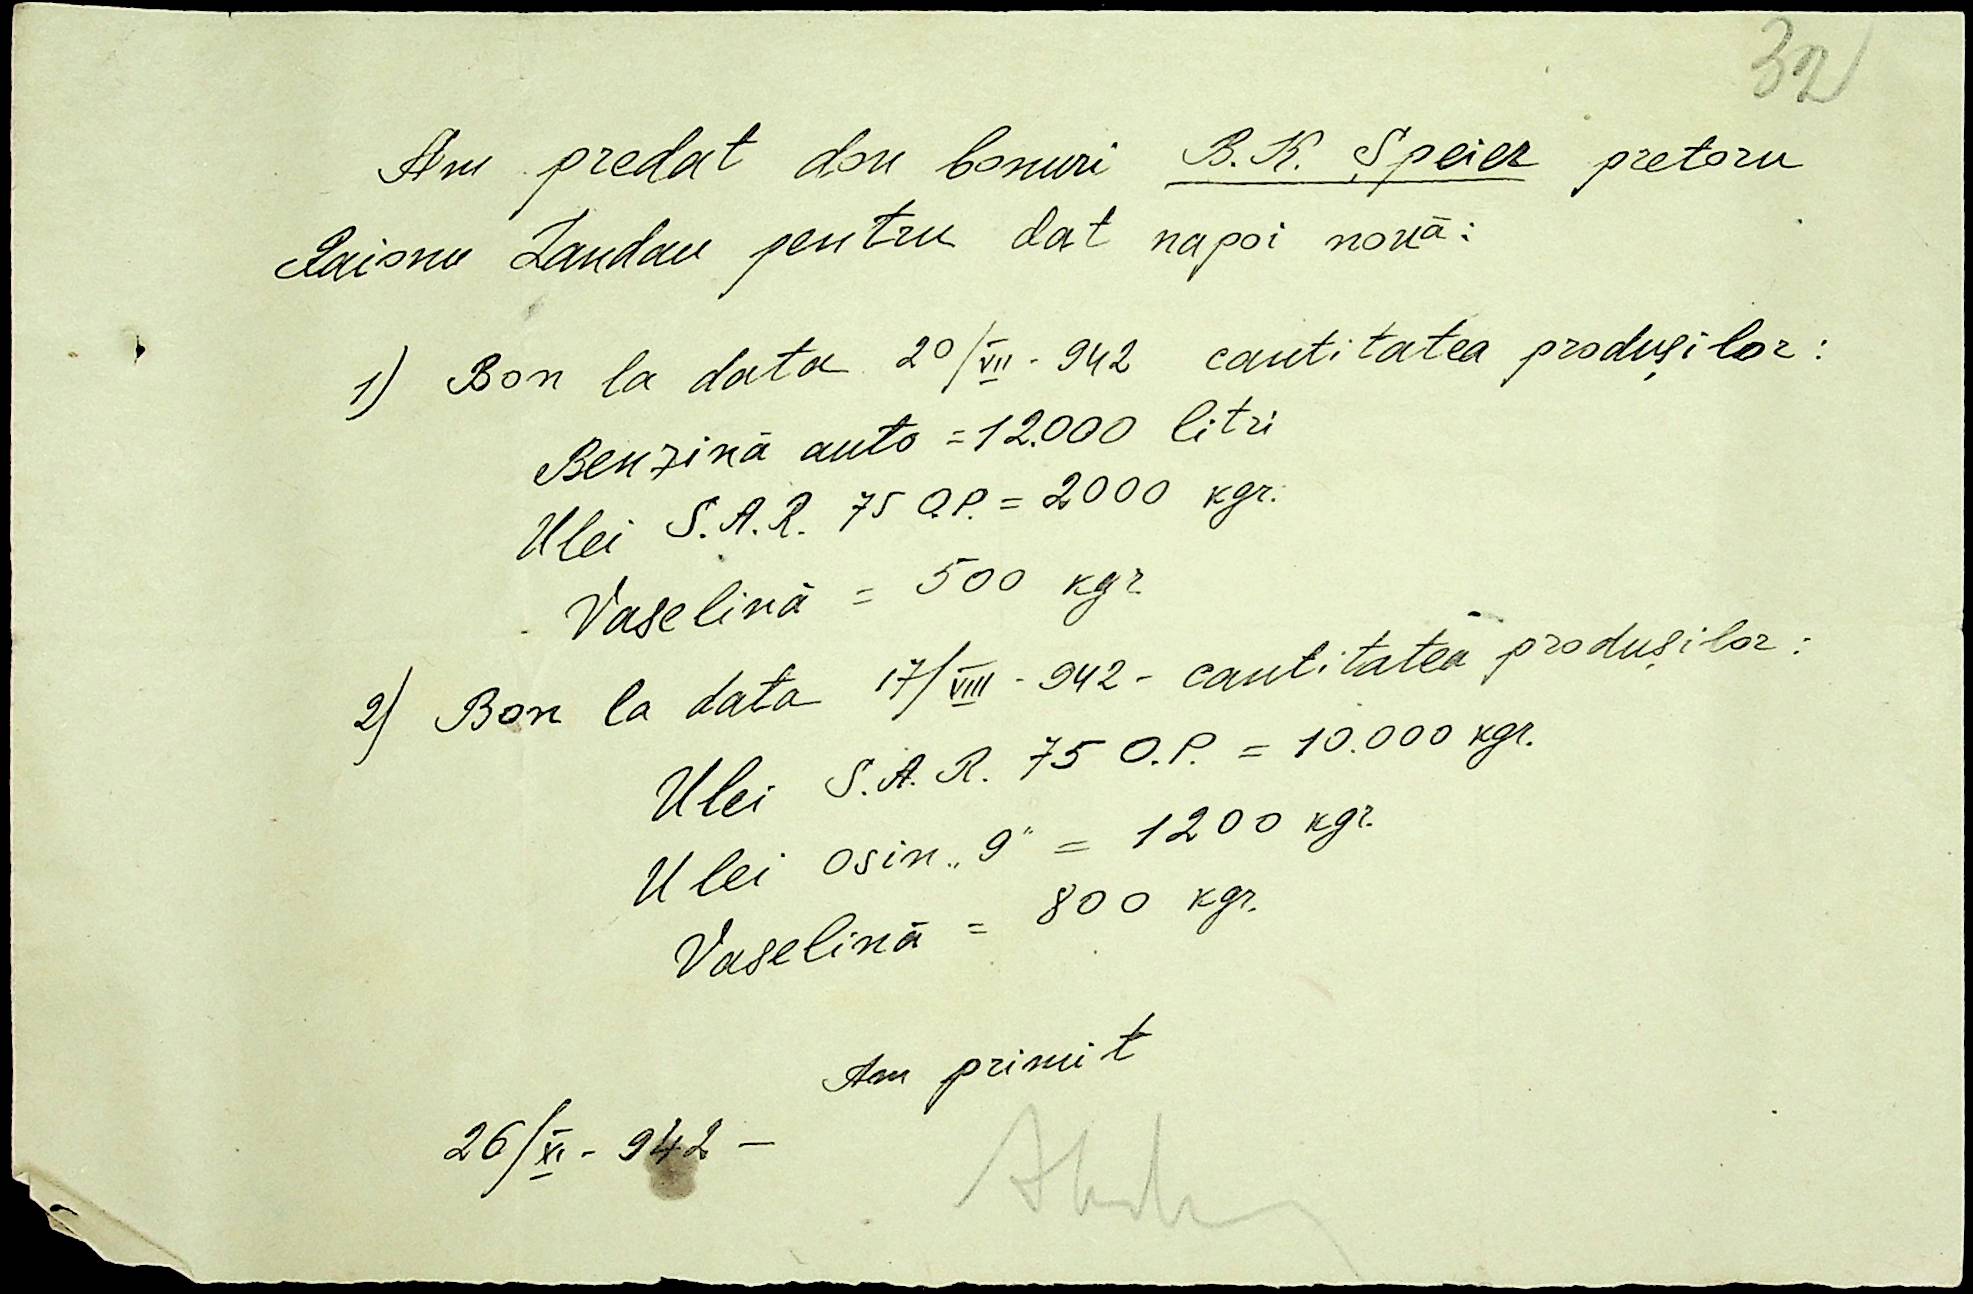 32
Am predat dou bonuri B.K. Speier pretoru
Raionu Landau pentru dat napoi nouă:
1) Bon la data 20/VII - 942 cantitatea produșilor:
Benzină auto = 12.000 litri
Ulei S.A.R. 75 O.P. = 2000 kgr.
Vaselină = 500 kgr.
2) Bon la data 17/VIII - 942 - cantitatea produșilor:
Ulei S.A.R. 75 O.P. = 10.000 kgr.
Ulei osin „9" = 1200 kgr.
Vaselină = 800 kgr.
Am primit
26/XI - 942 -